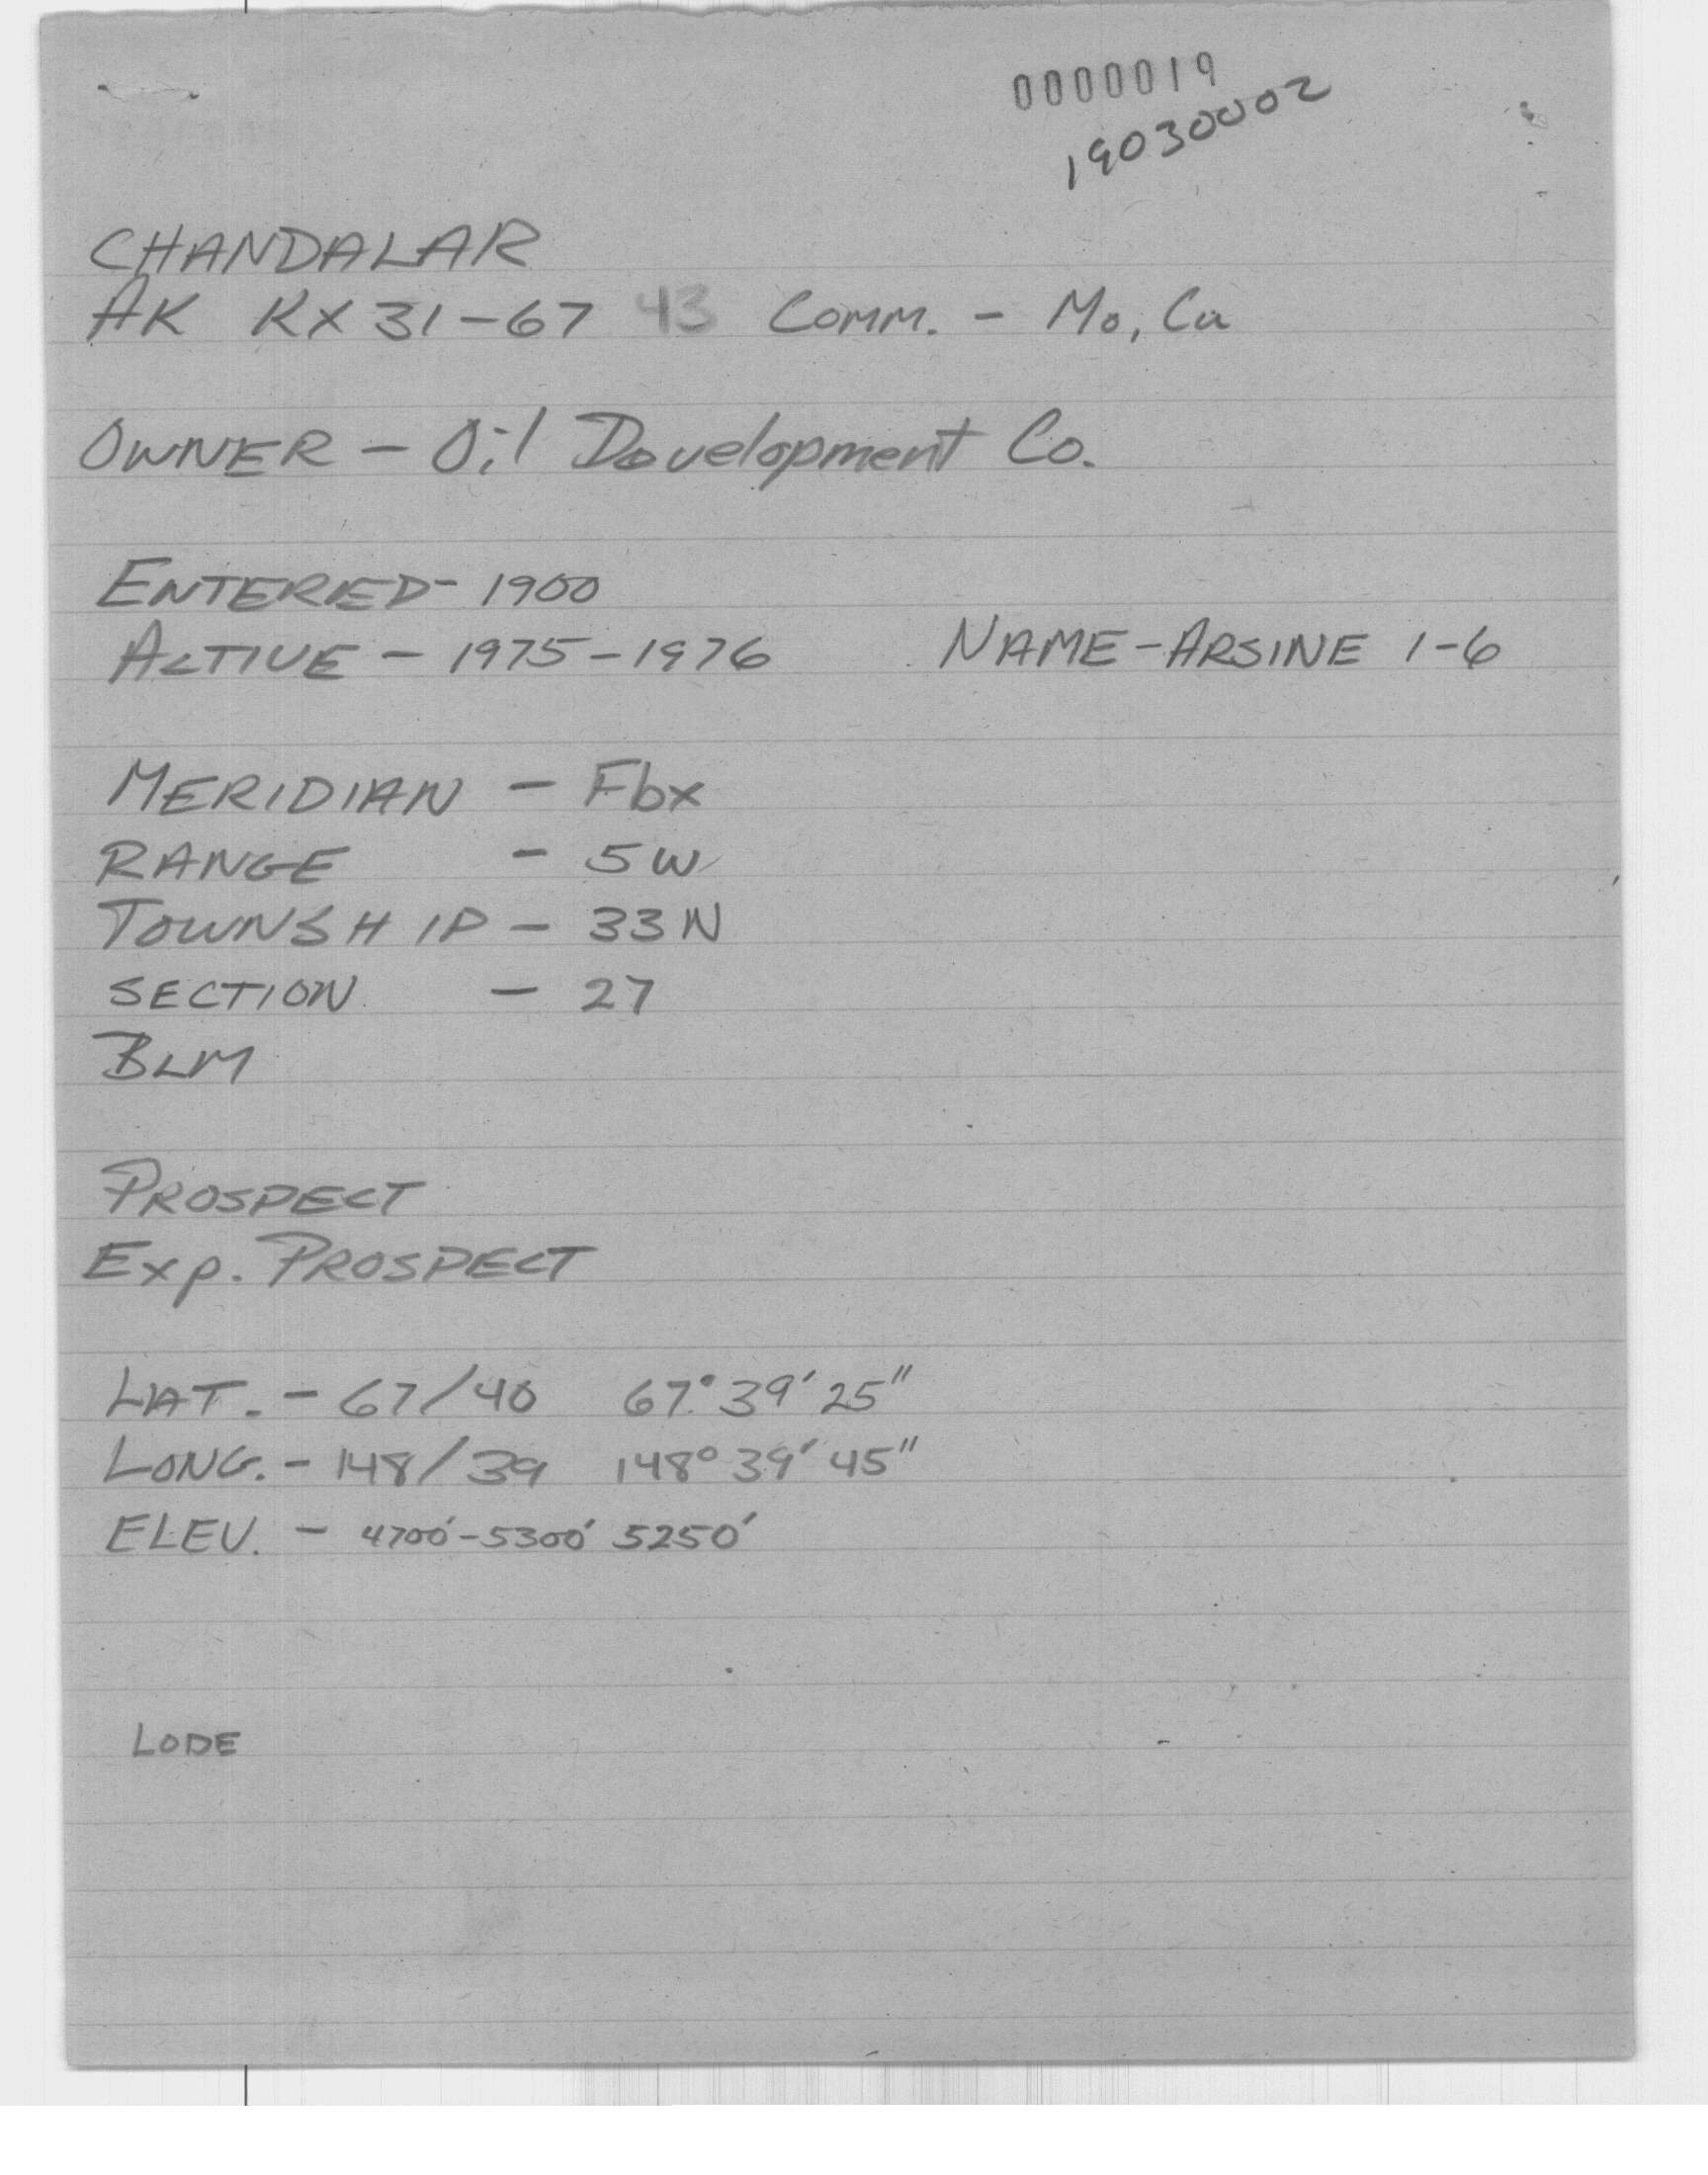 0000019
19030002
CHANDALAR
AK KX 31-67 43 Comm. - Mo, Cu
OWNER - Oil Development Co.
ENTERED- 1900
ACTIVE - 1975-1976 NAME-ARSINE 1-6
MERIDIAN - Fbx
RANGE - 5W
TOWNSHIP - 33N
SECTION - 27
BLM
PROSPECT
Exp. PROSPECT
LAT. - 67/40 67°39'25"
LONG. - 148/39 148°39'45"
ELEV. - 4700'-5300' 5250'
LODE